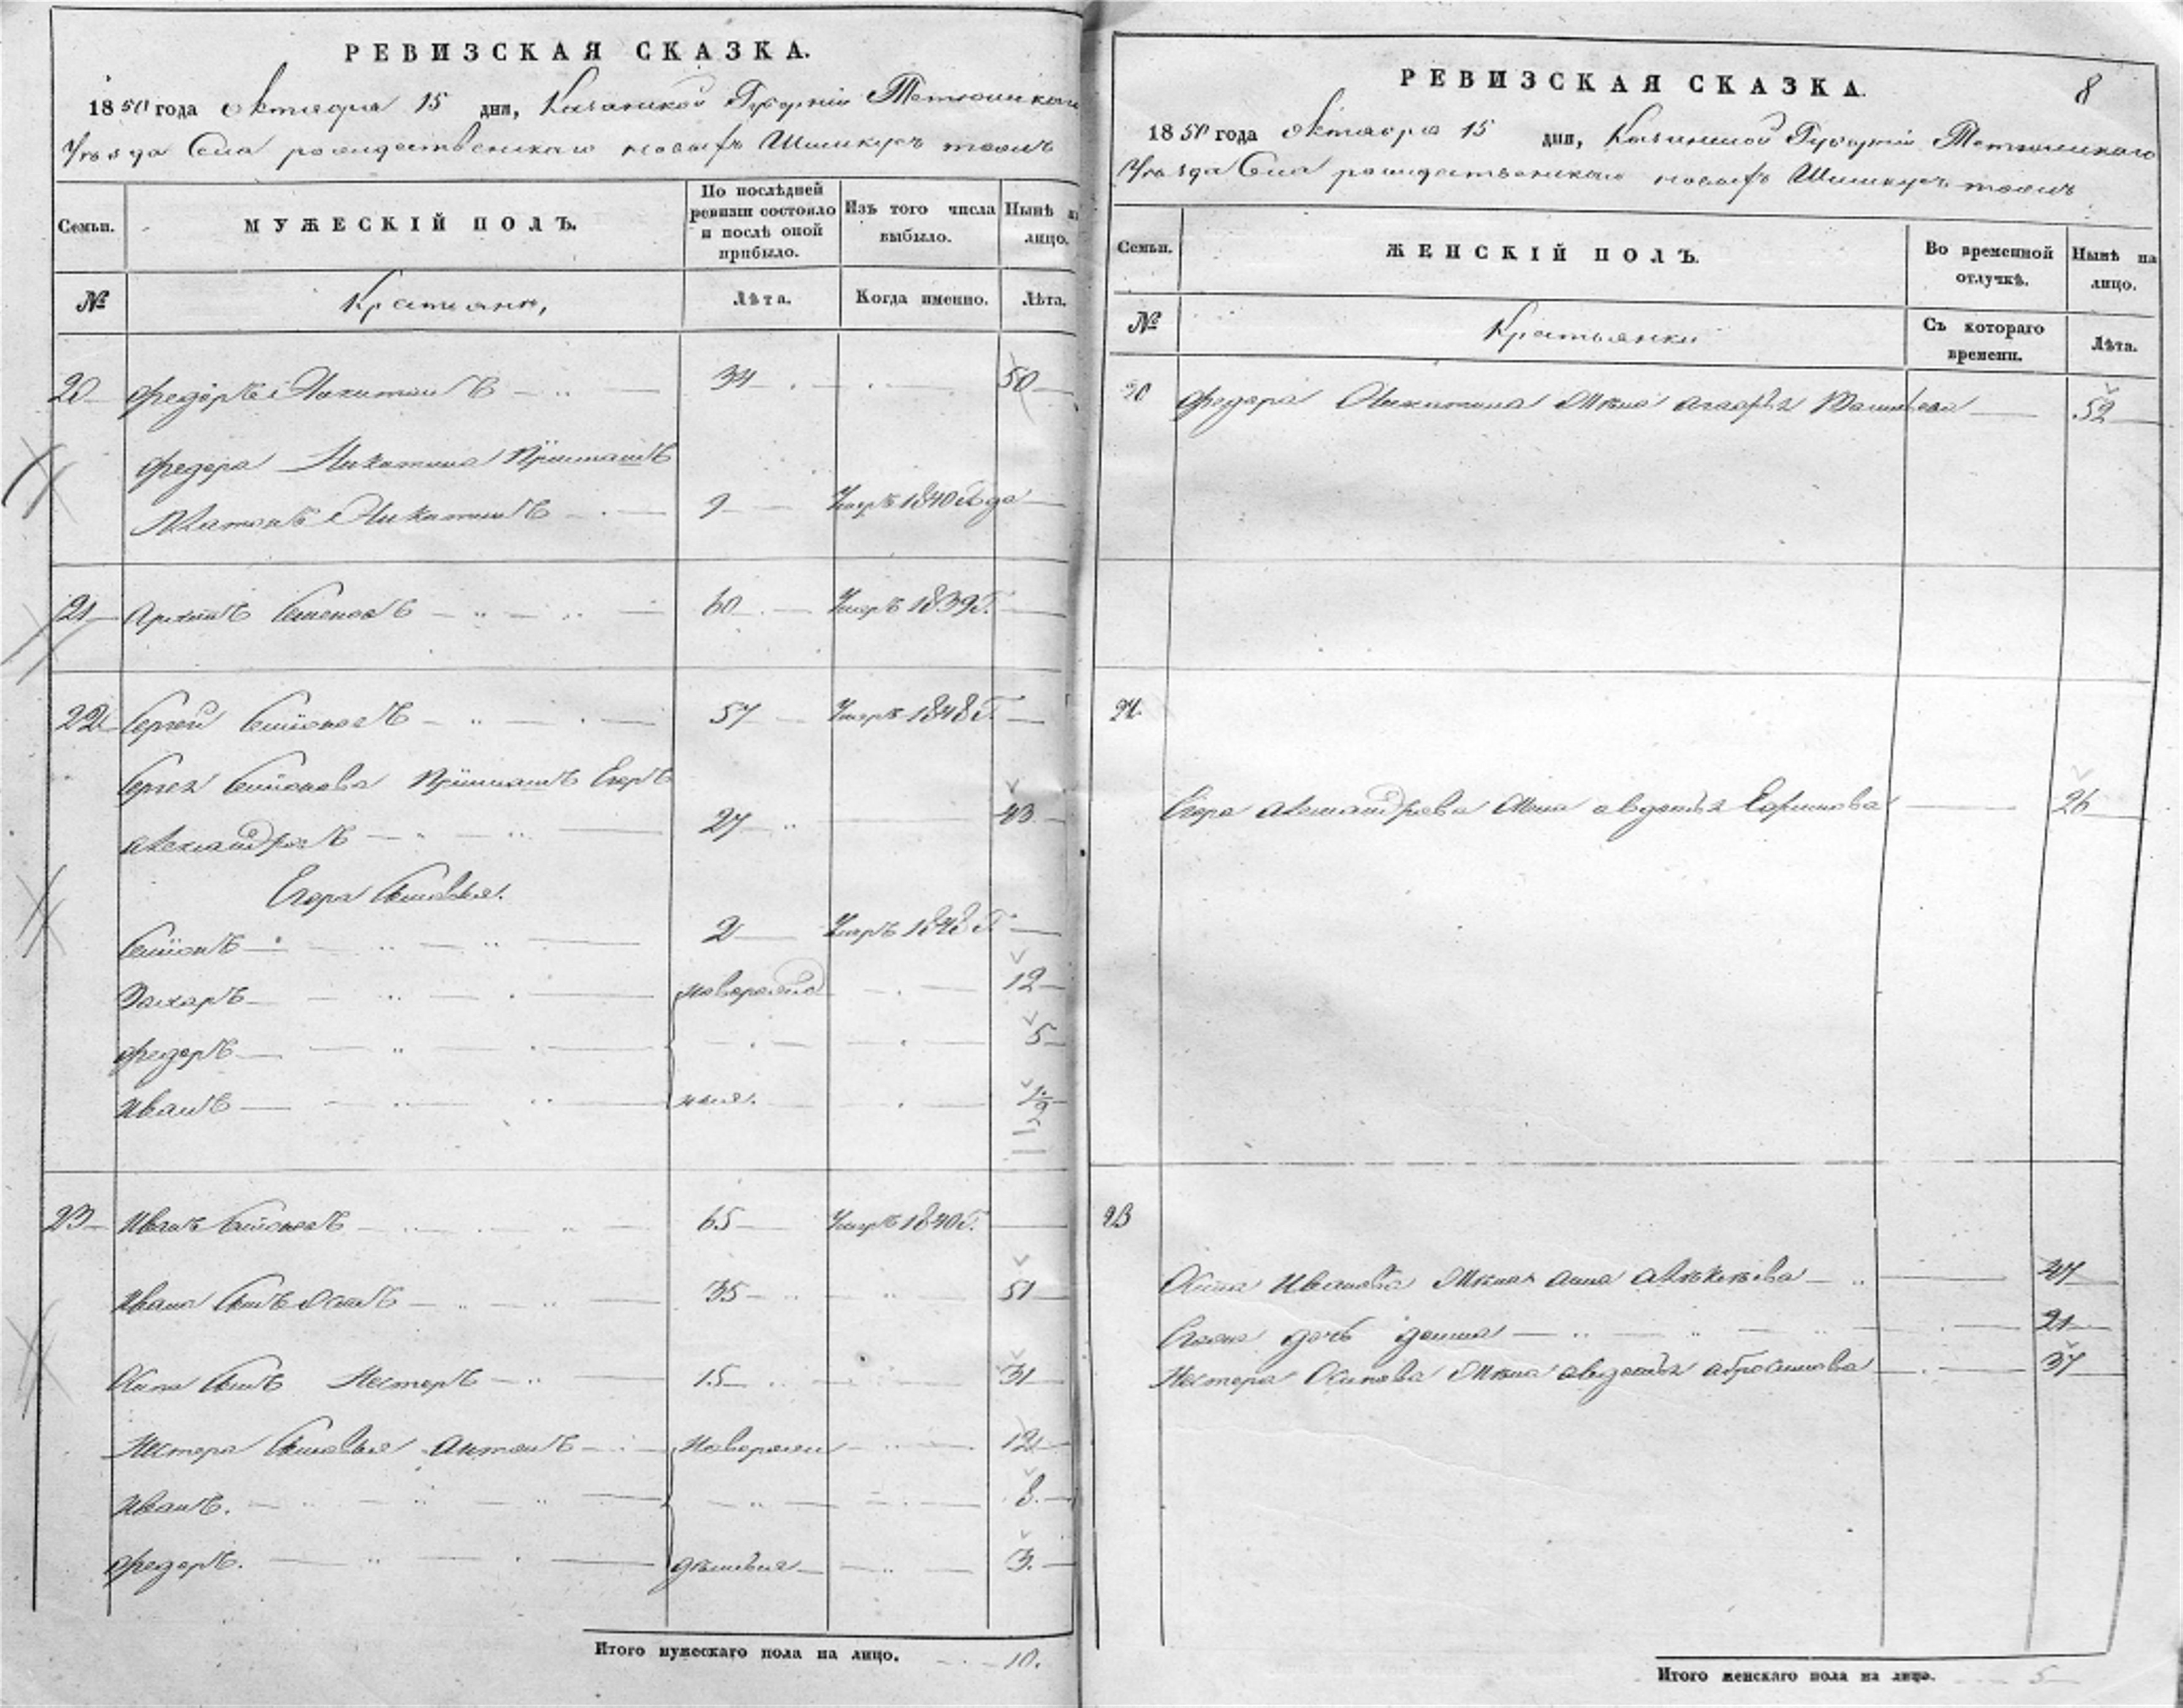 РЕВИЗСКАЯ СКАЗКА.
1850 года Октября 15 дня, Казанской Губернии Тетюшскаго
Уѣзда Села рождественскаго
Семьи.
МУЖЕСКІЙ ПОЛЪ.
По послѣдней ревизіи состояло и послѣ оной прибыло.
Изъ того числа выбыло.
Нынѣ на лицо.
№
Крестьяне,
Лѣта.
Когда именно.
Лѣта.
20 Федоръ Никитинъ 34 50
Федора Никитина Пріимашъ
Платонъ Никитинъ 9 Умръ 1840 Года
21 Архипъ Семеновъ 60 Умеръ 1839 Г.
22 Сергей Семіоновъ 57 Умеръ 1848 Г.
Сергея Семіонова Пріимашъ Егоръ
Александровъ 27 43
Егора Сыновья.
Семіонъ 2 Умръ 1848 Г.
Захаръ новорожде 12
Федоръ 5
Иванъ ныя. 1/2
23 Иванъ Семіоновъ 65 Умръ 1840 Г.
Ивана Сынъ Осипъ 35 51
Осипа Сынъ Несторъ 15 31
Нестера Сыновья Антонъ Новорожен 12
Иванъ. 8.
Федоръ. 3.
Итого мужескаго пола на лицо. 10.
РЕВИЗСКАЯ СКАЗКА.
8
1850 года Октября 15 дня, Казанской Губерніи Тетюшскаго
Уѣзда Села рождественскаго
Семьи.
ЖЕНСКІЙ ПОЛЪ.
Во временной отлучкѣ.
Нынѣ на лицо.
№
Крестьянки
Съ котораго времени.
Лѣта.
20 Федора Никитина Жена Агафья Васильева 52
22
Егора Александрова Жена Авдотья Ефимова 26
23
Осипа Иванова Жена Анна Алексѣева 47
дочь 21
Нестера Осипова Жена Авдотья Абросимова 37
Итого женскаго пола на лицо. 5